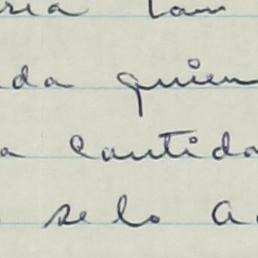 ria tan
da quien
a cantida
se lo a